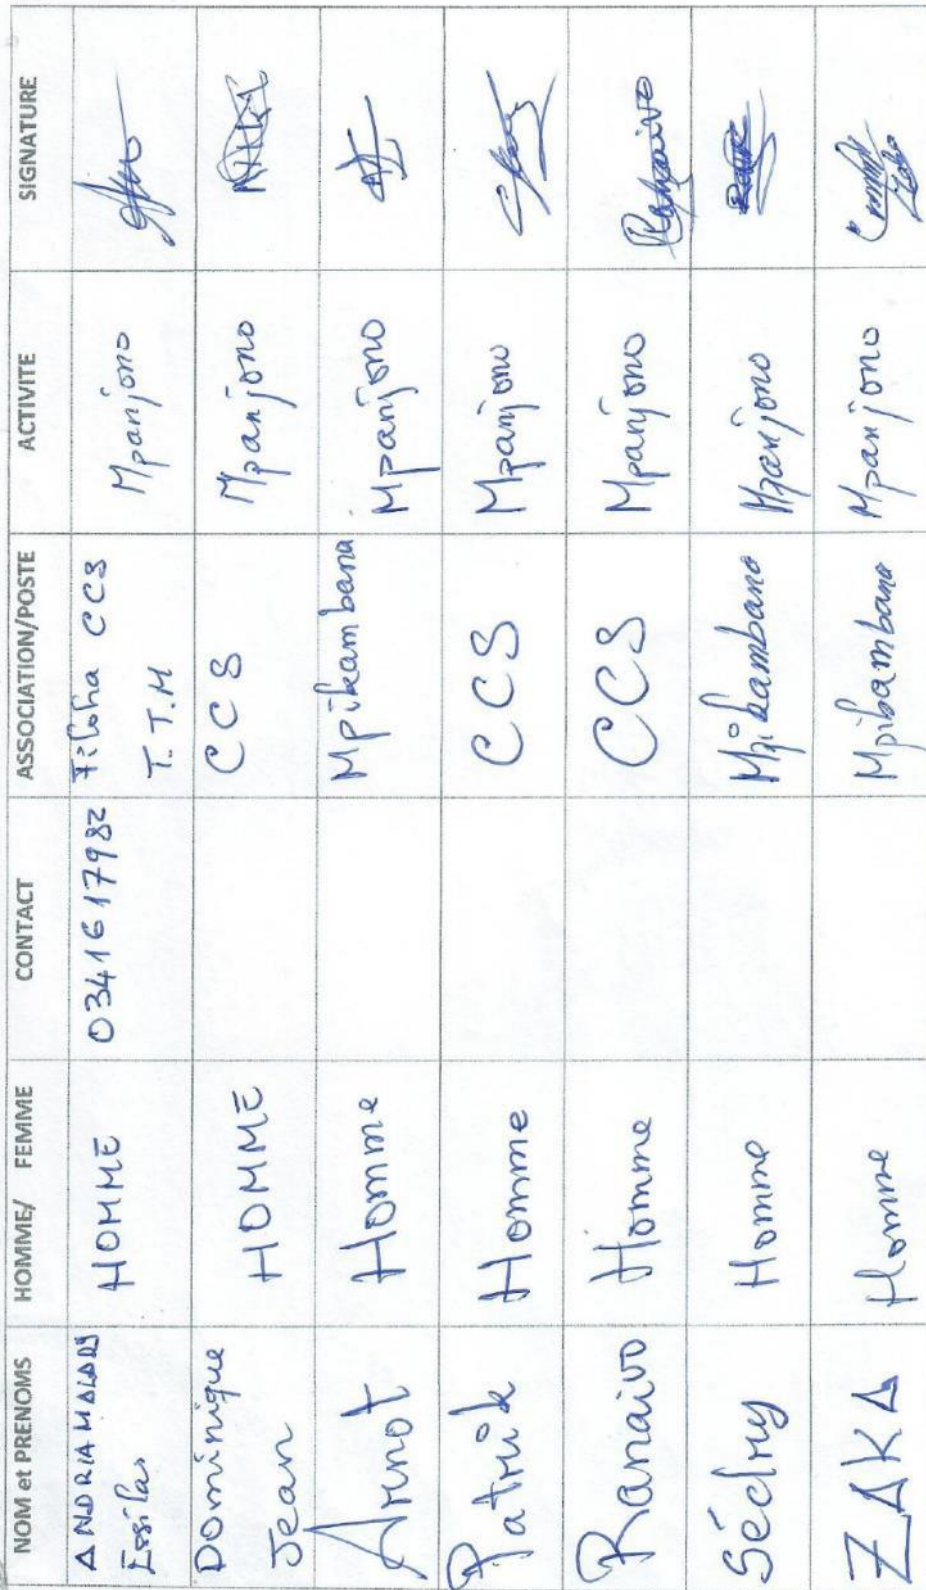 NOM et PRENOMS HOMME/ FEMME CONTACT ASSOCIATION/POSTE ACTIVITE SIGNATURE
HOMME 0341617982 Filoha CCS Mpanjono
T.T.M
Dominique HOMME CCS Mpanjono
Jean
Arnot Homme Mpikambana Mpanjono
Patrik Homme CCS Mpanjono
Ranaivo Homme CCS Mpanjono Ranaivo
Sédry Homme Mpikambana Mpanjono
ZAKA Homme Mpikambana Mpanjono